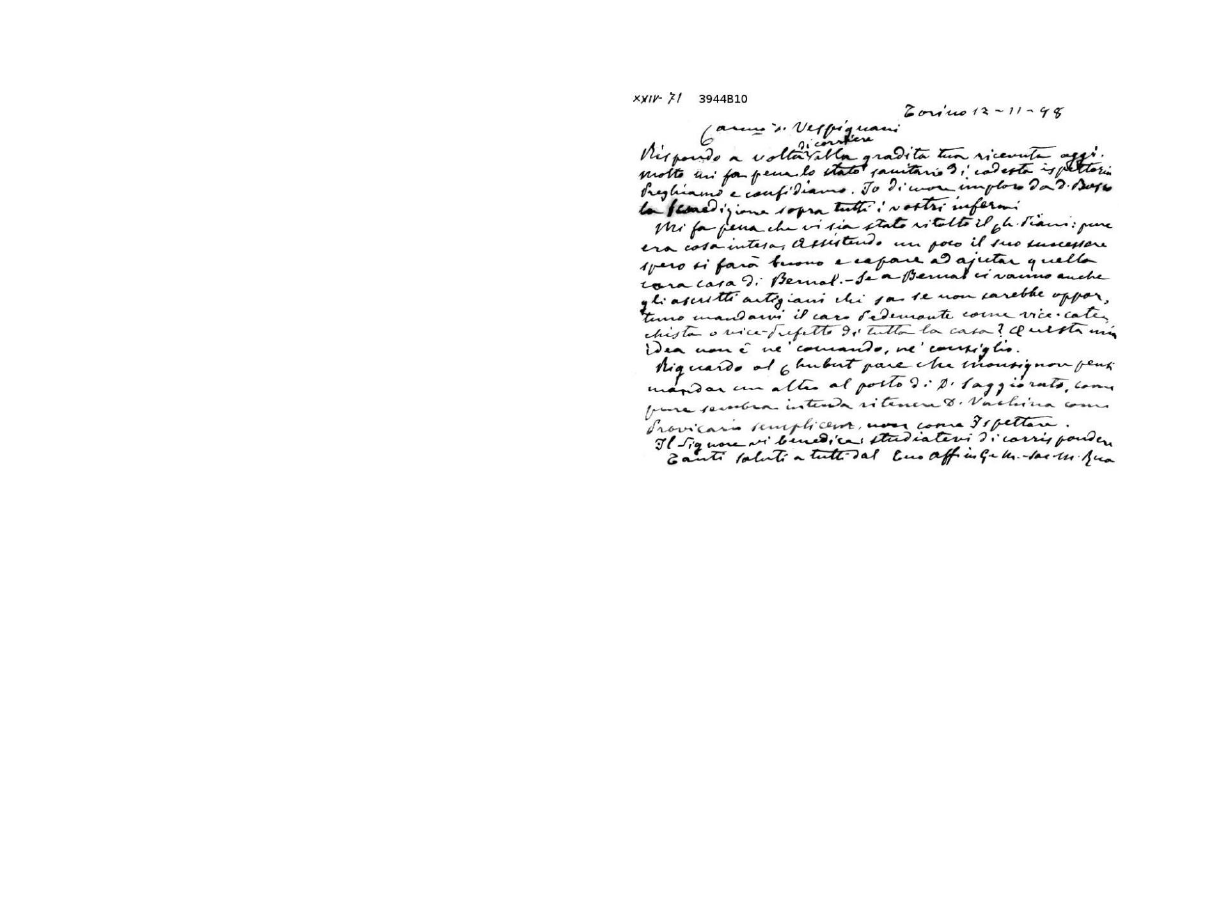 XXIV-71 3944B10
Torino 12-11-98
Carmo D. Vespignani
di corriere
Rispondo a volta alla gradita tua ricevuta oggi.
molto mi fa pena lo stato sanitario di codesta ispettoria
Preghiamo e confidiamo. Io di cuore imploro da D. Bosco
la benedizione sopra tutti i vostri infermi
Mi fa pena che vi sia stato ritolto il ch. Piani: pure
era cosa intesa; Assistendo un poco il suo successore
spero si farà buono e capace ad ajutar quella
cara casa di Bernal.-Se a Bernal ci vanno anche
gli ascritti artigiani chi sa se non sarebbe oppor,
tuno mandarvi il caro Pedemonte come vice-cate,
chista o vice-Prefetto di tutta la casa? Questa mia
idea non è nè comando, nè consiglio.
Riguardo al Chubut pare che Monsignor pensi
mandar un altro al posto di D. Saggiorato, come
pure sembra intenda ritenere D. Vachina come
Provicario semplicem. non come Ispettore.
Il Signore vi benedica; studiatevi di corrispondere
Tanti saluti a tutti dal tuo Aff in G. e M. - Sac M. Rua